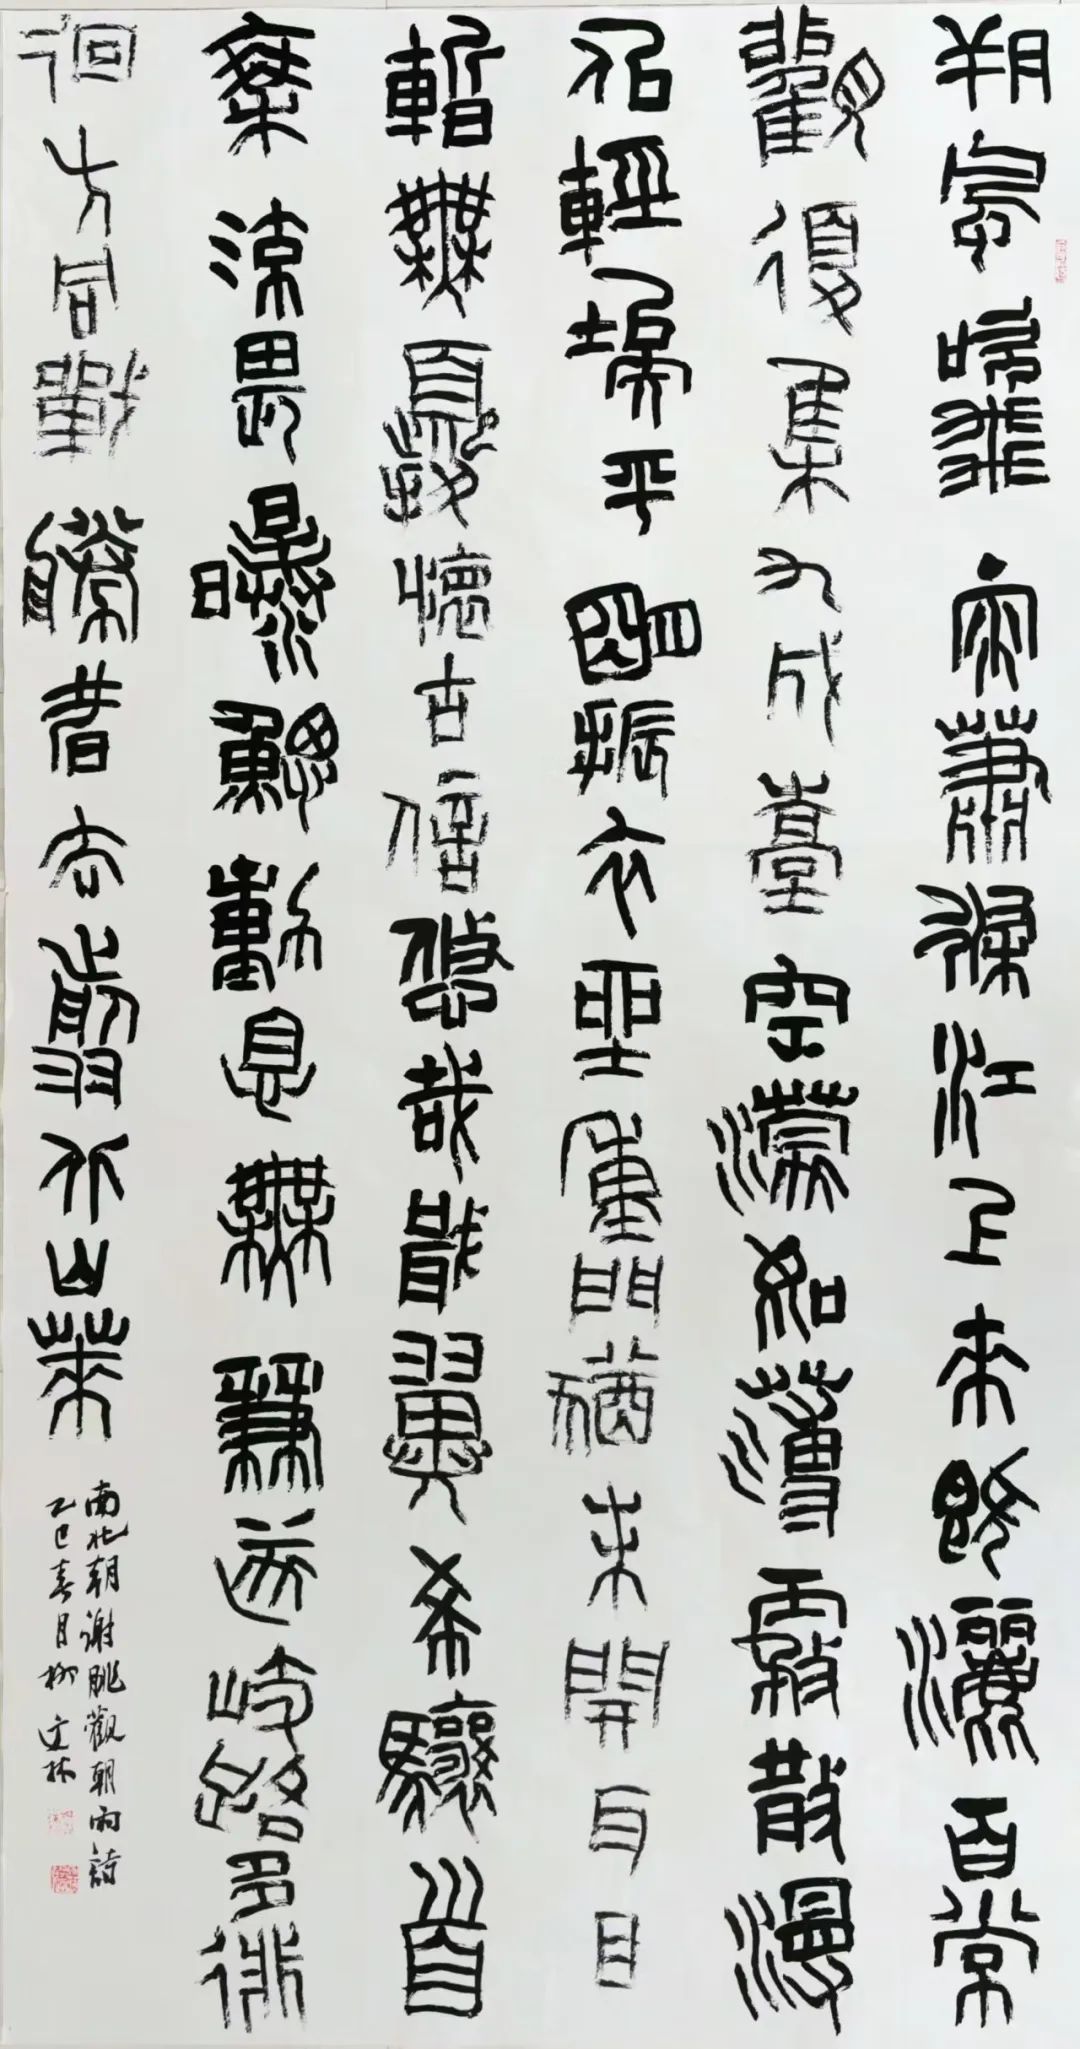 朔風吹飛雨蕭條江上來既灑百常
觀復集九成臺空濛如薄霧散漫
似輕埃平明振衣坐重門猶未開耳目
暫無擾懷古信悠哉戢翼希驤首
乘流畏曝鰓動息無兼遂岐路多徘
徊方同戰勝者去翦北山萊
南北朝謝朓觀朝雨詩
乙巳春月柳文林